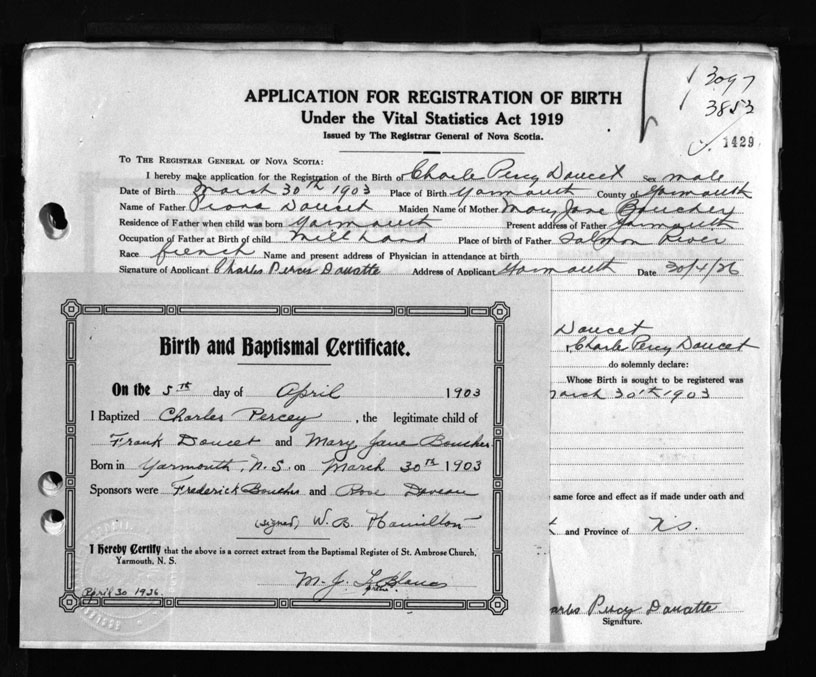 3097
3853
1429
APPLICATION FOR REGISTRATION OF BIRTH
Under the Vital Statistics Act 1919
Issued by The Registrar General of Nova Scotia.
TO THE REGISTRAR GENERAL OF NOVA SCOTIA:
I hereby make application for the Registration of the Birth of Charles Percy Doucet Sex male
Date of Birth March 30th 1903 Place of Birth Yarmouth County of Yarmouth
Name of Father Doucet Maiden Name of Mother Mary Jane Boucher
Residence of Father when child was born Yarmouth Present address of Father Yarmouth
Occupation of Father at Birth of child Mill hand Place of birth of Father Salmon River
Race french Name and present address of Physician in attendance at birth
Signature of Applicant Charles Percy Doucette Address of Applicant Yarmouth Date 30/4/26
Doucet
Charles Percy Doucet
do solemnly declare:
Whose Birth is sought to be registered was
March 30th 1903
same force and effect as if made under oath and
and Province of N.S.
Charles Percy Doucette
Signature.
Birth and Baptismal Certificate.
On the 5th day of April 1903
I Baptized Charles Percey, the legitimate child of
Frank Doucet and Mary Jane Boucher
Born in Yarmouth, N.S. on March 30th 1903
Sponsors were Frederick Boucher and Rose
(signed) W. B. Hamilton
I Hereby Certify that the above is a correct extract from the Baptismal Register of St. Ambrose Church,
Yarmouth, N. S.
M. J. LeBlanc
April 30 1926.